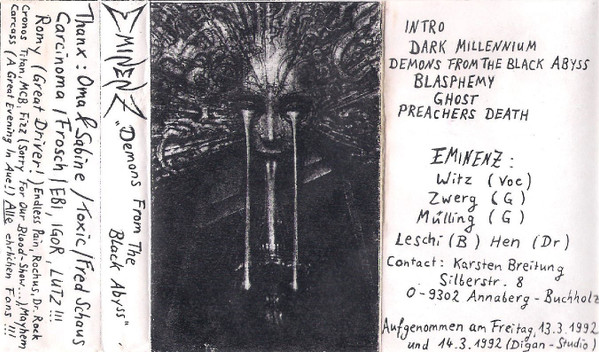 Thanx: Oma & Sabine / Toxic / Fred Schaus
Carcinoma / Frosch / EBI, IGOR, LUTZ !!!
Romy (Great Driver!) Endless Pain, Rachus, Dr. Rock
Cronos Titan, MCB, Fizz (Sorry For Our Blood-Show...) Mayhem
Carcass (A Great Evening In Aue!) Alle ehrlichen Fans !!!
EMINENZ „Demons From The
Black Abyss".
INTRO
DARK MILLENNIUM
DEMONS FROM THE BLACK ABYSS
BLASPHEMY
GHOST
PREACHERS DEATH
EMINENZ:
Witz (Voc)
Zwerg (G)
Mülling (G)
Leschi (B) Hen (Dr)
Contact: Karsten Breitung
Silberstr. 8
O-9302 Annaberg-Buchholz
Aufgenommen am Freitag, 13.3.1992
und 14.3.1992 (Digan-Studio)